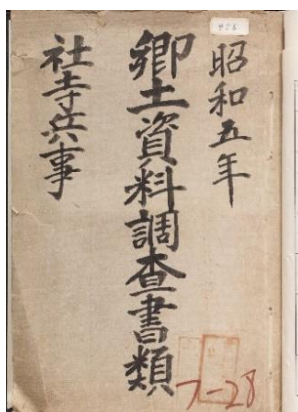 昭和五年
郷土資料調査書類
社寺兵事
7-28